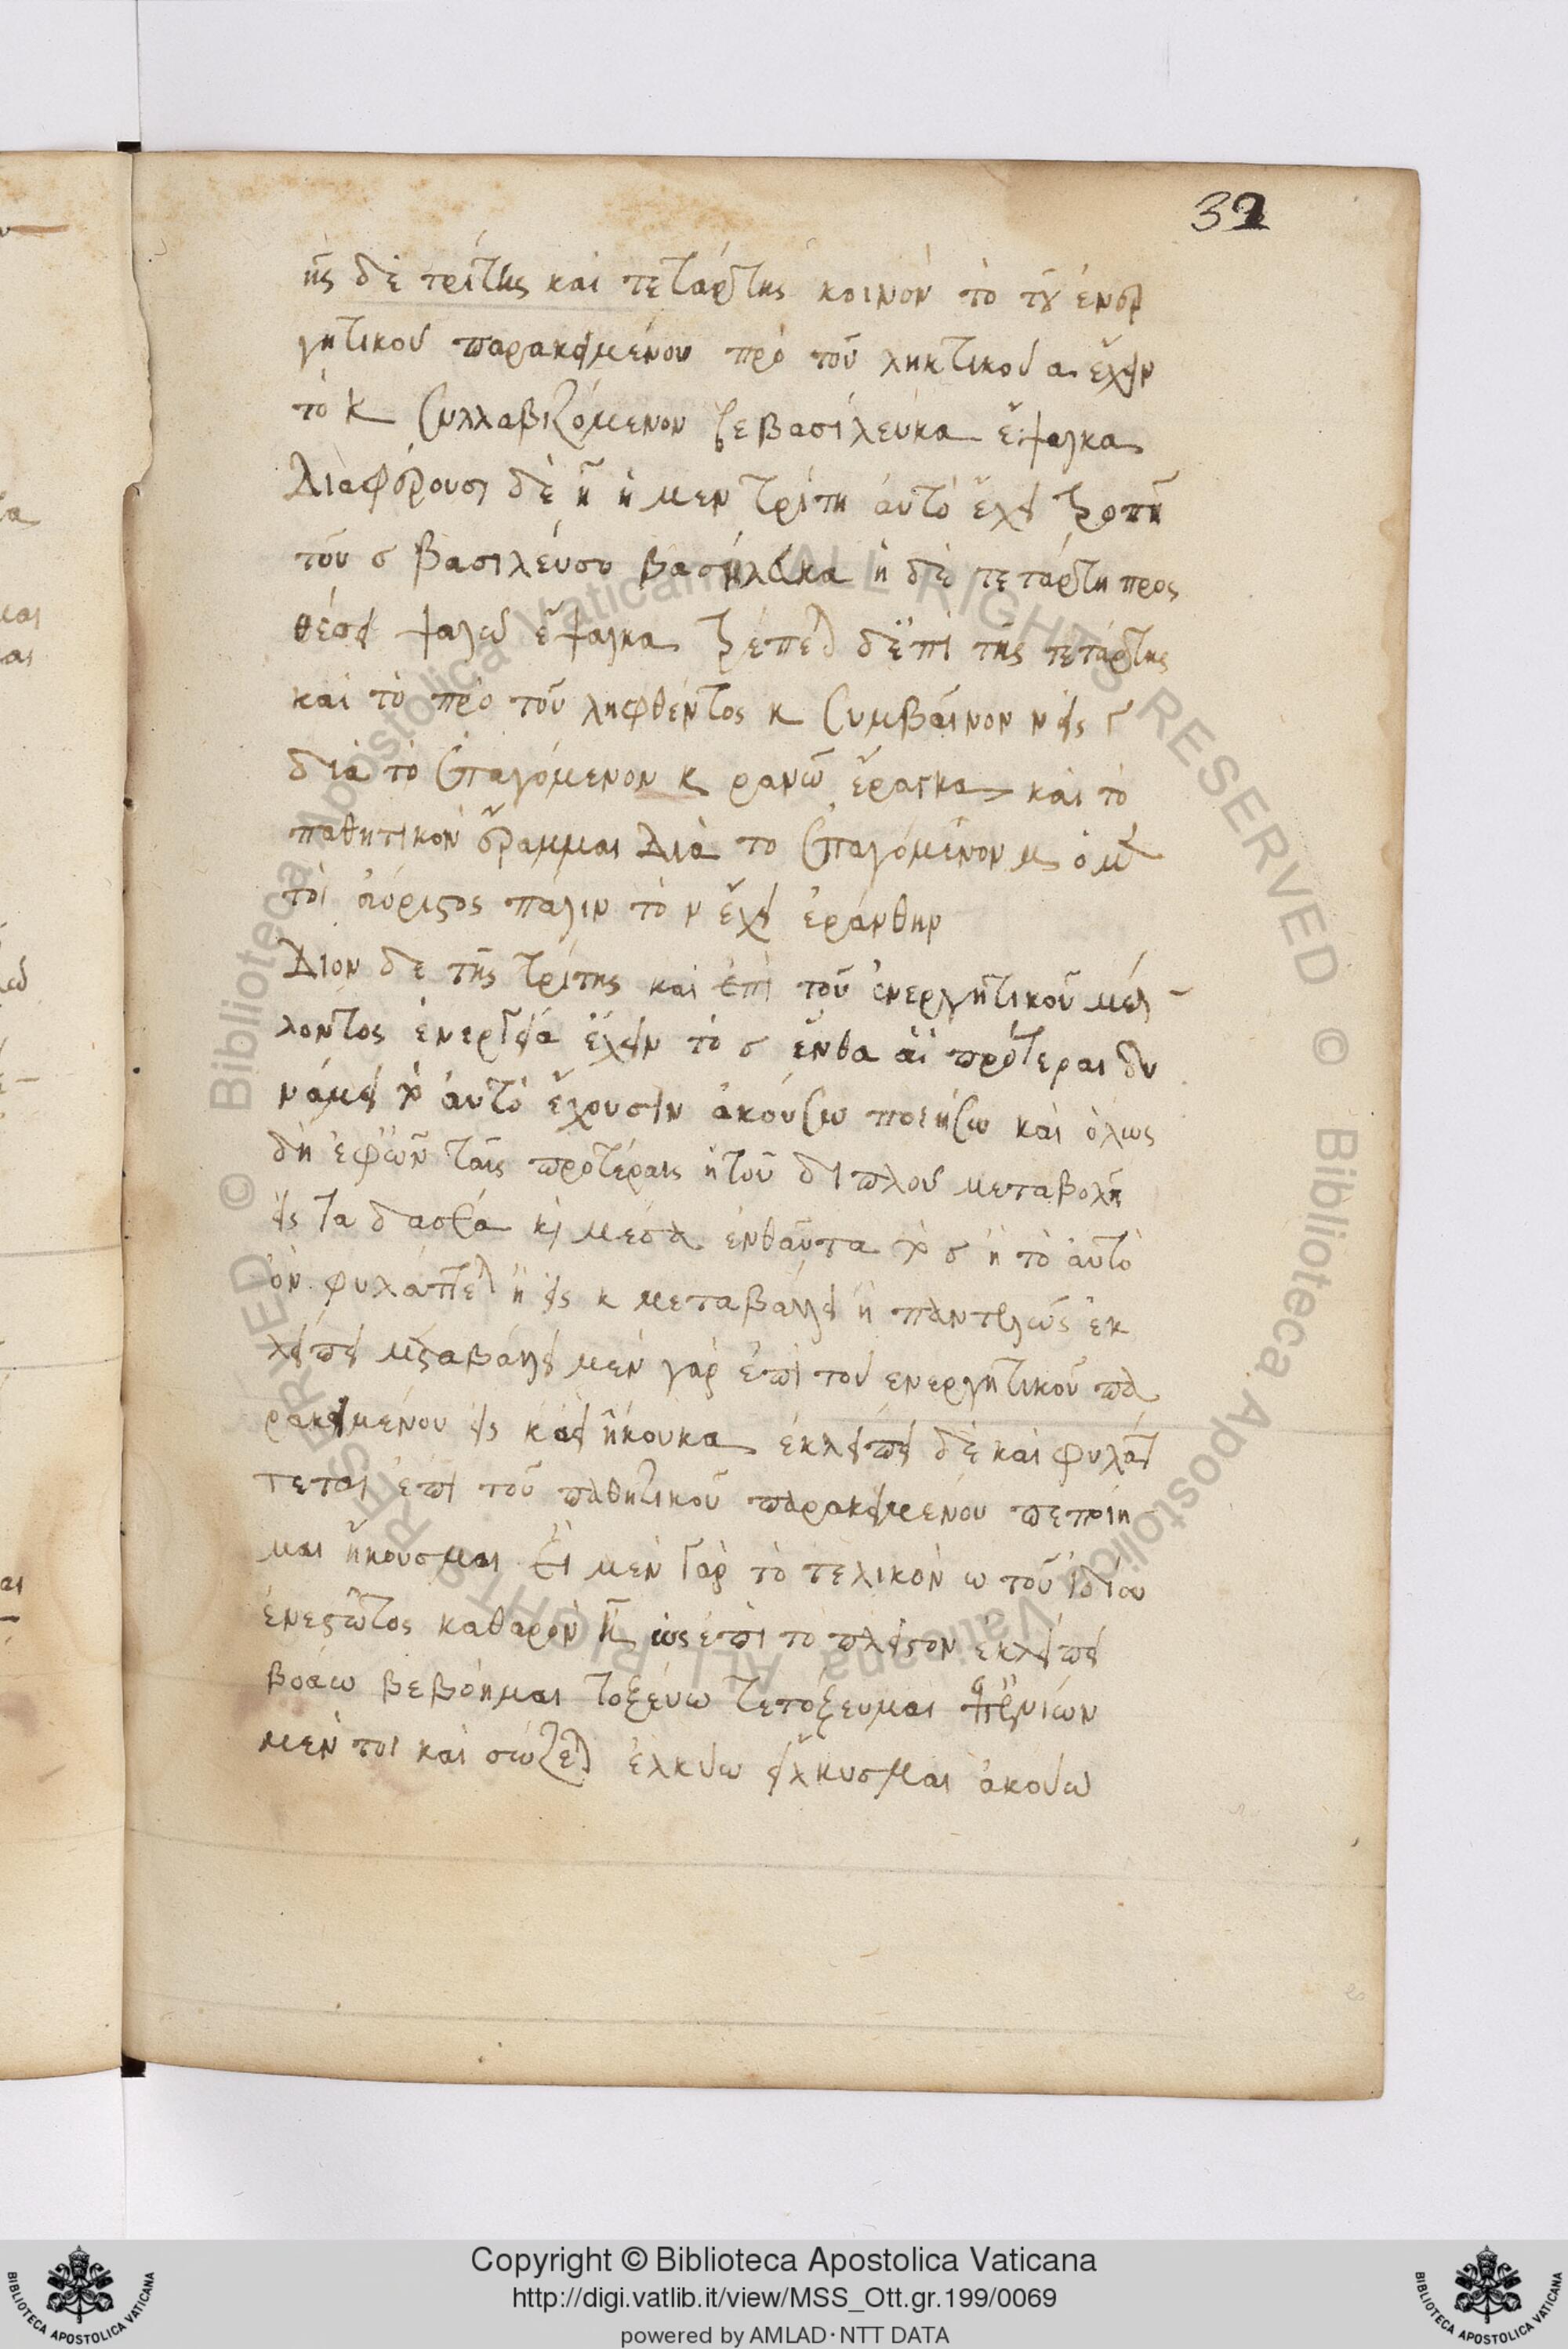 32
ῆς δὲ τρίτης καὶ τετάρτης κοινὸν τὸ τοῦ ἐνερ
γητικοῦ παρακειμένου πρὸ τοῦ ληκτικοῦ α ἔχειν
τὸ κ συλλαβιζόμενον βεβασίλευκα ἔψαλκα
Διαφέρουσι δὲ ἡ μὲν τρίτη αὐτὸ ἔχει τροπῇ
τοῦ σ βασιλεύσω βασίλευκα ἡ δὲ τετάρτη προς
θέσει ψαλῶ ἔψαλκα τρέπεται δ' ἐπὶ τῆς τετάρτης
καὶ τὸ πρὸ τοῦ ληφθέντος κ συμβαῖνον ν εἰς γ
διὰ τὸ ἐπαγόμενον κ ρανῶ ἔραγκα καὶ τὸ
παθητικὸν ἔραμμαι Διὰ τὸ ἐπαγόμενον μ ὁ μέν
τοι ἀόριστος πάλιν τὸ ν ἔχει ἐράνθην
Δῖον δὲ τῆς τρίτης καὶ ἐπὶ τοῦ ἐνεργητικοῦ μέλ
λοντος ἐνεργείᾳ ἔχειν τὸ σ ἔνθα αἱ πρότεραι δυ
νάμει αὐτὸ ἔχουσιν ἀκούσω ποιήσω καὶ ὅλως
δὴ ἐφ' ὧν ταῖς προτέραις ἡ τοῦ διπλοῦ μεταβολὴ
εἰς τα δασέα καὶ μέσα ἐνθαῦτα τὸ σ ἢ τὸ αὐτὸ
ὂν φυλάττεται ἢ εἰς κ μεταβάλλει ἢ παντελῶς ἐκ
λείπει μεταβάλλει μὲν γὰρ ἐπὶ τοῦ ἐνεργητικοῦ πα
ρακειμένου εἰς κ ἀεὶ ἤκουκα ἐκλείπει δὲ καὶ φυλάτ
τεται ἐπὶ τοῦ παθητικοῦ παρακειμένου πεποίη
μαι ἤκουσμαι Εἰ μὲν γὰρ τὸ τελικὸν ω τοῦ ἰδίου
ἐνεστῶτος καθαρὸν ὡς ἐπὶ τὸ πλεῖστον ἐκλείπει
βοάω βεβόημαι τοξεύω τετόξευμαι ἐπ' ἐνίων
μέν τοι καὶ σώζεται ἑλκύω εἵλκυσμαι ἀκούω
Copyright © Biblioteca Apostolica Vaticana
http://digi.vatlib.it/view/MSS_Ott.gr.199/0069
powered by AMLAD·NTT DATA